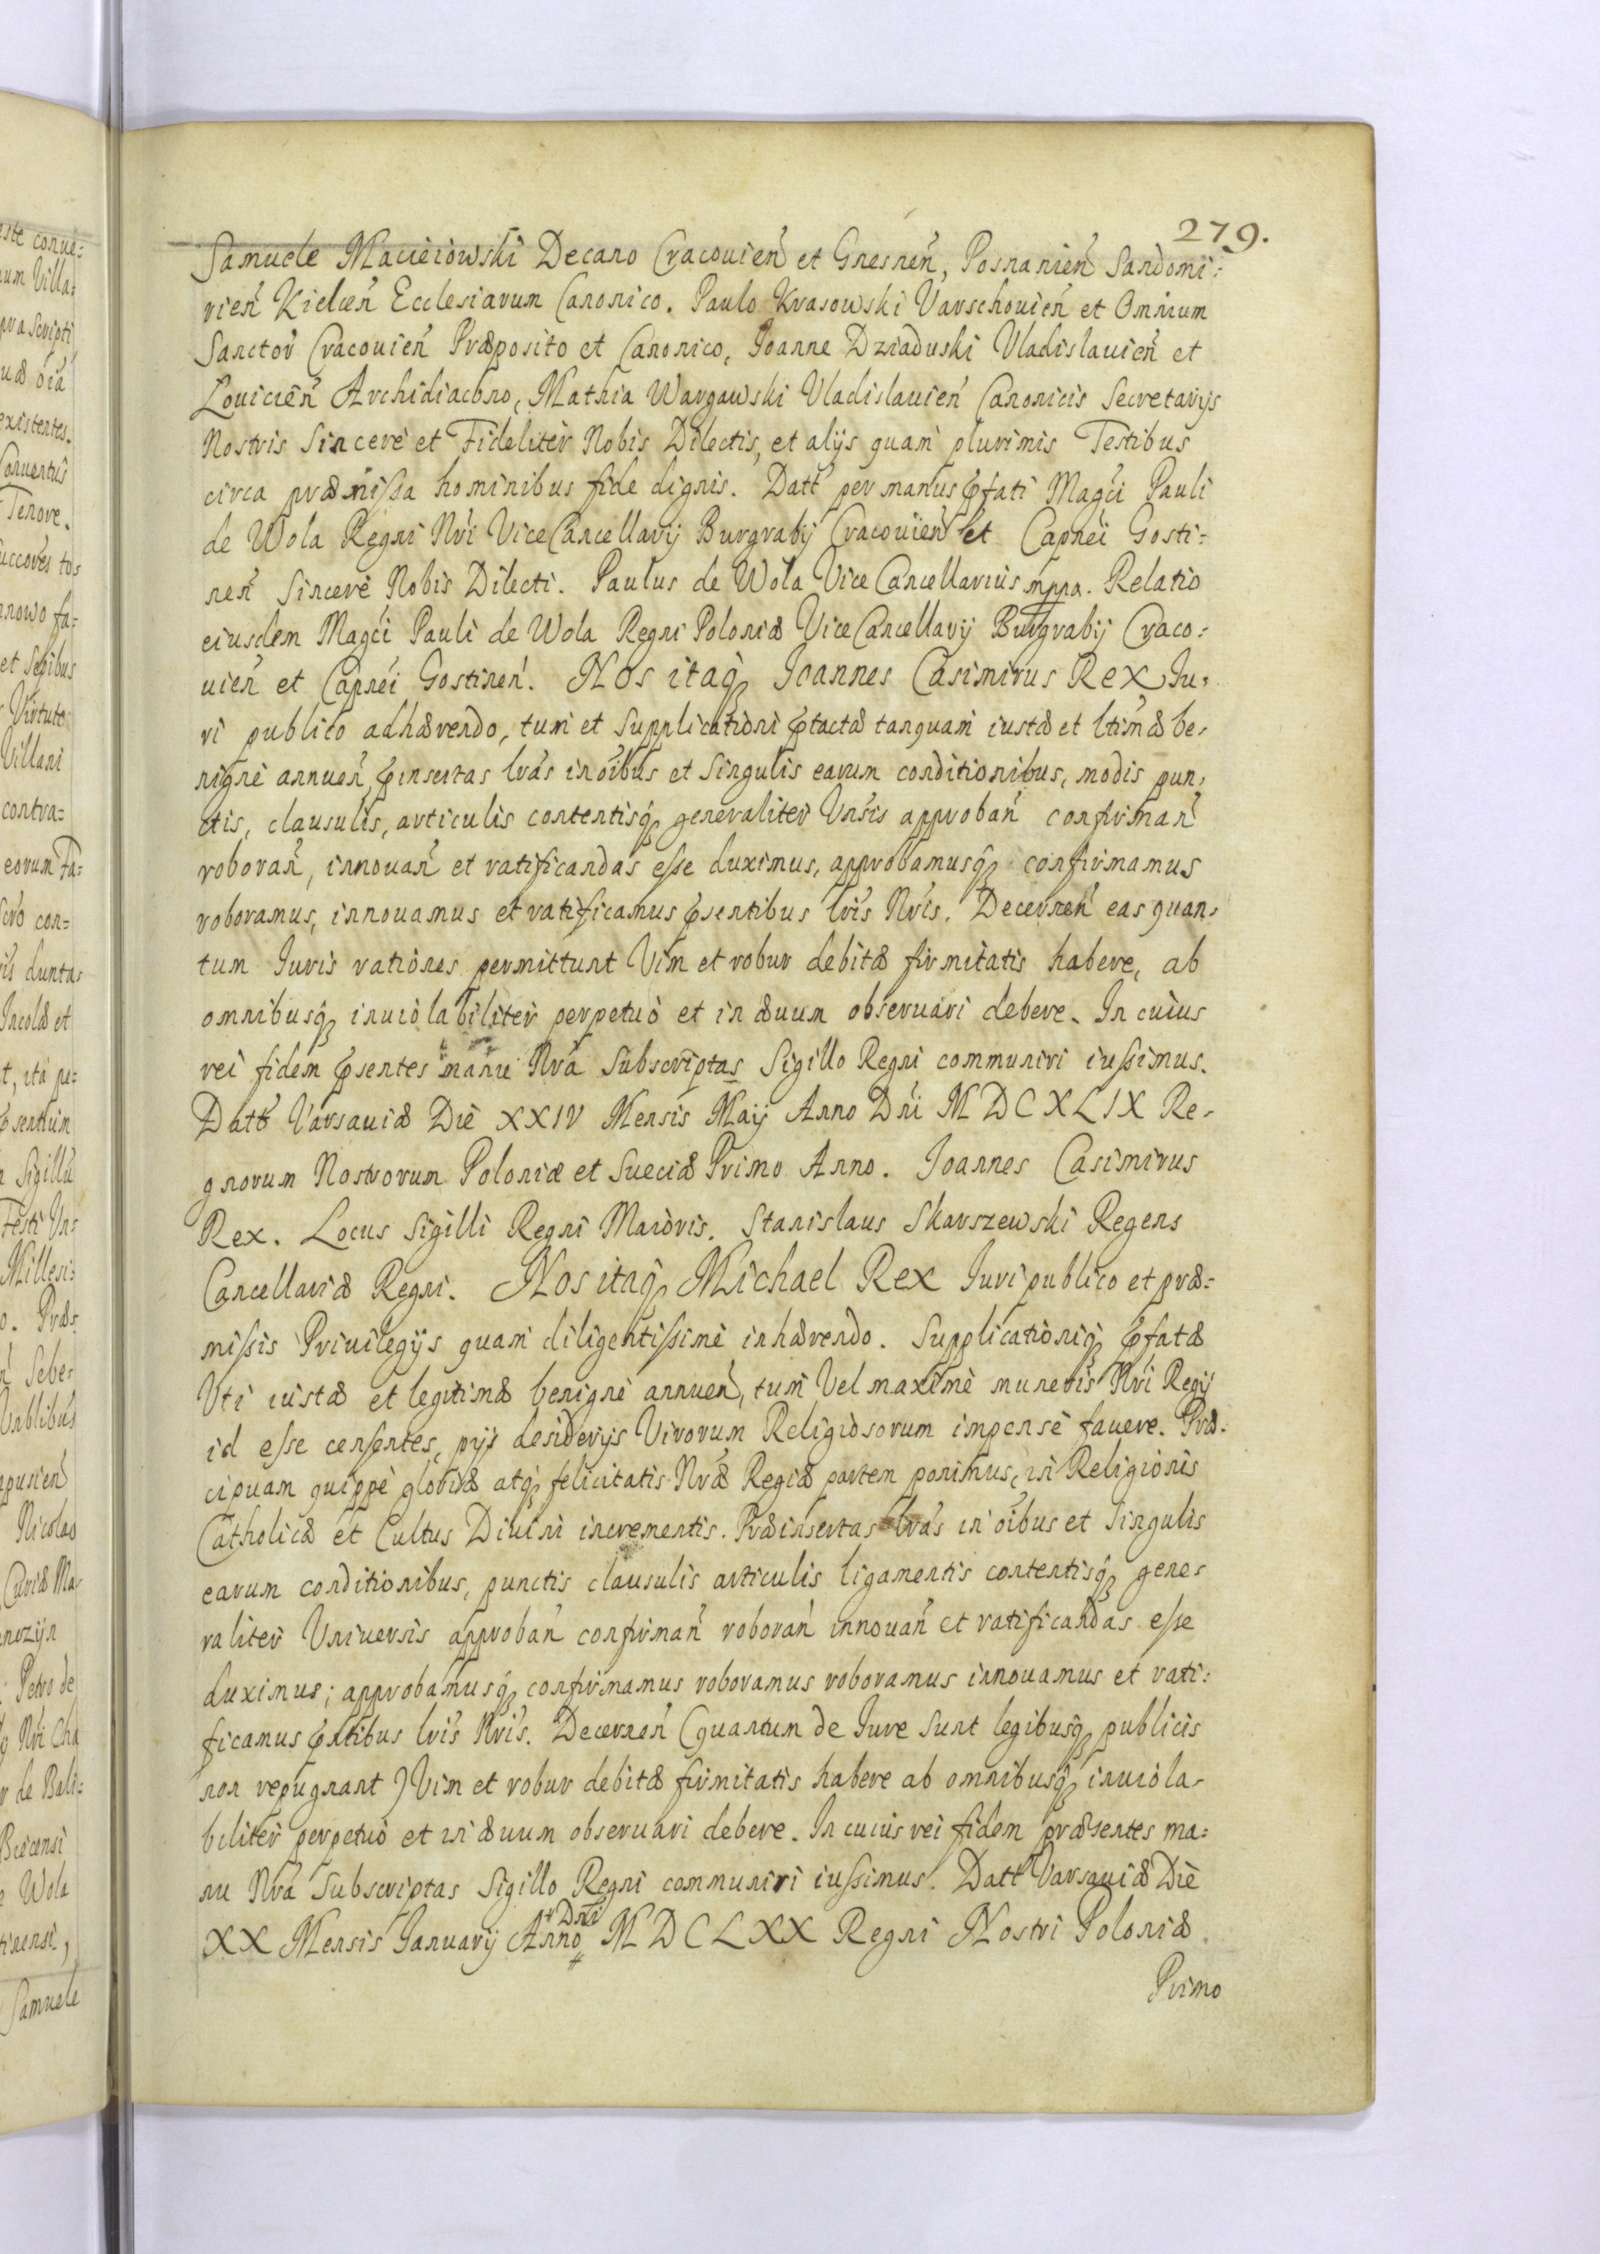 279.
Samuele Macieiowski Decano Cracouien̄ et Gnesnen̄, Posnanien̄ Sandomi:
rien̄ Kielcen̄ Ecclesiarum Canonico. Paulo Krasowski Varschouien̄ et Omnium
Sanctor̄ Cracouien̄ Præposito et Canonico, Joanne Dziaduski Vladislauien̄ et
Louicien̄ Archidiacono, Mathia Wargawski Vladislauien̄ Canonicis Secretarijs
Nostris Sincerè et Fideliter Nobis Dilectis, et alijs quam plurimis Testibus
circa præmissa hominibus fide dignis. Datt̄ per manus p̄fati Magc̄i Pauli
de Wola Regni Nr̄i ViceCancellarij Burgrabij Cracouien̄ et Capnēi Gosti:
nen̄ Sincerè Nobis Dilecti. Paulus de Wola Vice Cancellarius mppa. Relatio
eiusdem Magc̄i Pauli de Wola Regni Poloniæ ViceCancellarij Burgrabij Craco:
uien̄ et Capnēi Gostinen̄. Nos itaq̄ Joannes Casimirus Rex Ju,
ri publico adhærendo, tum et Supplicationi p̄tactæ tanquam iustæ et ltīmæ be,
nignè annuen̄, p̄insertas lrās in oībus et Singulis earum conditionibus, modis pun,
ctis, clausulis, articulis contentisq̄ generaliter Vnīsis approban̄ confirman̄
roboran̄, innouan̄ et ratificandas esse duximus, approbamusq̄ confirmamus
roboramus, innouamus et ratificamus p̄sentibus lrīs Nrīs. Decernen̄ eas quan,
tum Juris rationes permittunt Vim et robur debitæ firmitatis habere, ab
omnibusq̄ inuiolabiliter perpetuò et in æuum obseruari debere. In cuius
rei fidem p̄sentes manu Nrā Subscriptas Sigillo Regni communiri iussimus.
Datt̄ Varsauiæ Die XXIV Mensis Maij Anno Dn̄i MDCXLIX Re,
gnorum Nostrorum Poloniæ et Sueciæ Primo Anno. Joannes Casimirus
Rex. Locus Sigilli Regni Maioris. Stanislaus Skarszewski Regens
Cancellariæ Regni. Nos itaq̄ Michael Rex Juri publico et præ=
missis Priuilegijs quam diligentissimè inhærendo. Supplicationiq̄ p̄fatæ
Vti iustæ et legitimæ benignè annuen̄, tum Vel maximè muneris Nrī Regij
id esse censentes, pijs desiderijs Virorum Religiosorum impensè fauere. Præ,
cipuam quippè gloriæ atq̄ felicitatis Nrǣ Regiæ partem ponimus, in Religionis
Catholicæ et Cultus Diuini incrementis. Præinsertas lrās in oībus et Singulis
earum conditionibus, punctis clausulis articulis ligamentis contentisq̄ gene,
raliter Vniuersis approban̄ confirman̄ roboran̄ innouan̄ et ratificandas esse
duximus; approbamusq̄ confirmamus roboramus roboramus innouamus et rati:
ficamus p̄ntibus lrīs Nrīs. Decernen̄ (quantum de Jure Sunt legibusq̄ publicis
non repugnant) Vim et robur debitæ firmitatis habere ab omnibusq̄ inuiola,
biliter perpetuò et in æuum obseruari debere. In cuius rei fidem præsentes ma:
nu Nrā Subscriptas Sigillo Regni communiri iussimus. Datt̄ Varsauiæ Die
XX Mensis Januarij Anno Dn̄i MDCLXX Regni Nostri Poloniæ
Primo